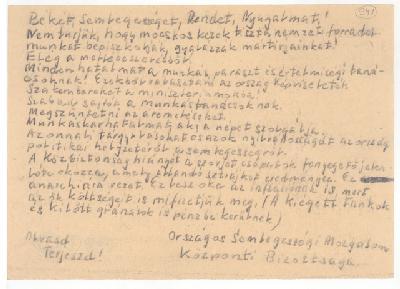 241
Békét, Semlegességet, Rendet, Nyugalmat!
Nem tűrjük, hogy mocskos kezek tiszta nemzeti forradal-
munkat bepiszkolják, gyalázzák mártírjainkat!
Elég a
Minden hatalmat a munkás, paraszt és értelmiségi taná-
csoknak! az ország képviseletét
miniszteri
Szabad sajtót a munkástanácsoknak.
Megszüntetni az áremeléseket.
Munkáskarhatalmat, aki a népet szolgálja.
Azonnali tárgyalásokat és azok nyilvánosságát az ország
politikai helyzetéről és semlegességről.
A Közbiztonság hiányát a szovjet csapatok fenyegető jelen-
léte okozza, amely állandó sztrájkot eredményez. Ez
anarchiára vezet. Ez lesz oka az inflációnak is, mert
az ők költségeit is mi fizetjük meg. (A kiégett tankok
és kilőtt gránátok is pénzbe kerülnek)
Olvasd
Terjeszd!
Országos Semlegességi Mozgalom
Központi Bizottsága.